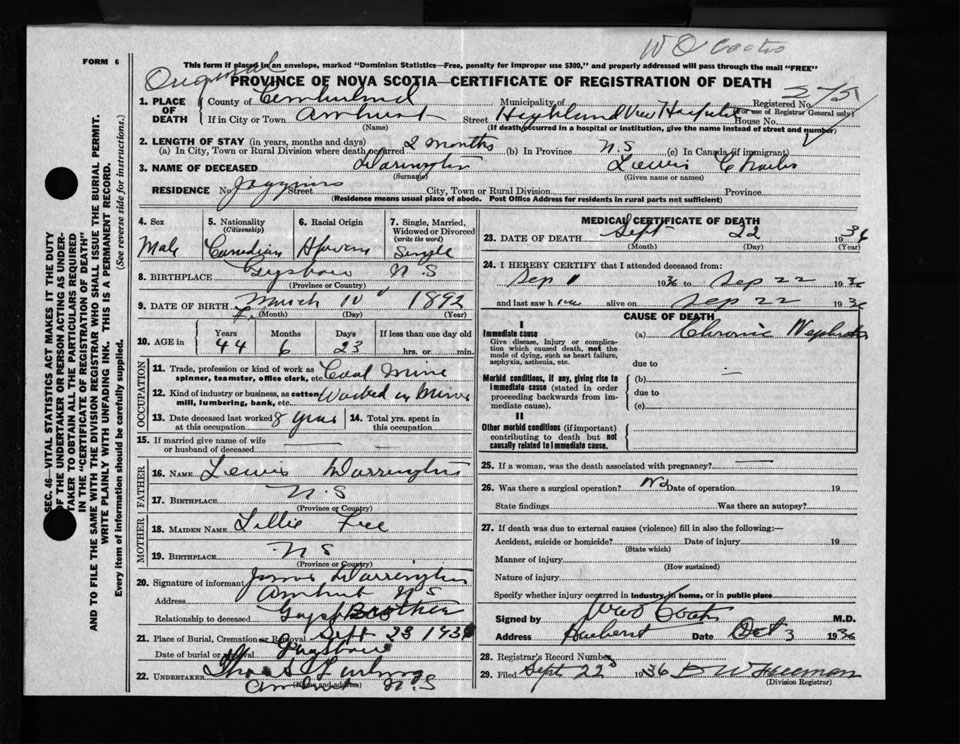 W O Coates
FORM 6
This form if placed in an envelope, marked "Dominion Statistics—Free, penalty for improper use $300," and properly addressed will pass through the mail "FREE"
Original
PROVINCE OF NOVA SCOTIA—CERTIFICATE OF REGISTRATION OF DEATH
275
1. PLACE OF DEATH
County of Cumberland Municipality of Registered No.
(For use of Registrar General only)
If in City or Town Amherst Street Highland View Hospital House No.
(Name) (If death occurred in a hospital or institution, give the name instead of street and number)
2. LENGTH OF STAY (in years, months and days)
(a) In City, Town or Rural Division where death occurred 2 months (b) In Province N.S (c) In Canada (if immigrant)
3. NAME OF DECEASED Warrington Lewis Charles
(Surname) (Given name or names)
RESIDENCE No. Joggins Street City, Town or Rural Division Province
(Residence means usual place of abode. Post Office Address for residents in rural parts not sufficient)
4. Sex Male
5. Nationality (Citizenship) Canadian
6. Racial Origin
7. Single, Married, Widowed or Divorced (write the word) Single
8. BIRTHPLACE N S
(Province or Country)
9. DATE OF BIRTH March 10 1892
(Month) (Day) (Year)
10. AGE in Years Months Days If less than one day old
44 6 23 hrs. or min.
OCCUPATION
11. Trade, profession or kind of work as spinner, teamster, office clerk, etc. Coal Mine
12. Kind of industry or business, as cotton mill, lumbering, bank, etc. Worked in Mines
13. Date deceased last worked at this occupation 8 years 14. Total yrs. spent in this occupation
15. If married give name of wife or husband of deceased —
FATHER
16. NAME Lewis Warrington
17. BIRTHPLACE N.S
(Province or Country)
MOTHER
18. MAIDEN NAME Lillie
19. BIRTHPLACE N S
(Province or Country)
20. Signature of informant Warrington
Address Amherst N S
Relationship to deceased Brother
21. Place of Burial, Cremation or Removal Sept 23 1936
Date of burial or removal
22. UNDERTAKER
(Name and address)
Amherst N.S
MEDICAL CERTIFICATE OF DEATH
23. DATE OF DEATH Sept 22 1936
(Month) (Day) (Year)
24. I HEREBY CERTIFY that I attended deceased from:
Sep 1 1936 to Sep 22 1936
and last saw h im alive on Sep 22 1936
CAUSE OF DEATH
I
Immediate cause (a) Chronic Nephritis
Give disease, injury or complication which caused death, not the mode of dying, such as heart failure, asphyxia, asthenia, etc.
due to
Morbid conditions, if any, giving rise to immediate cause (stated in order proceeding backwards from immediate cause).
(b) —
due to
(c)
II
Other morbid conditions (if important) contributing to death but not causally related to immediate cause.
25. If a woman, was the death associated with pregnancy? —
26. Was there a surgical operation? No Date of operation 19
State findings Was there an autopsy?
27. If death was due to external causes (violence) fill in also the following:—
Accident, suicide or homicide? Date of injury 19
(State which)
Manner of injury
(How sustained)
Nature of injury
Specify whether injury occurred in industry, in home, or in public place
Signed by Coates M.D.
Address Amherst Date Oct 3 1936
28. Registrar's Record Number
29. Filed Sept 22 1936
(Division Registrar)
SEC. 46—VITAL STATISTICS ACT MAKES IT THE DUTY
OF THE UNDERTAKER OR PERSON ACTING AS UNDER-
TAKER TO OBTAIN ALL THE PARTICULARS REQUIRED
IN THE "CERTIFICATE OF REGISTRATION OF DEATH"
AND TO FILE THE SAME WITH THE DIVISION REGISTRAR WHO SHALL ISSUE THE BURIAL PERMIT.
WRITE PLAINLY WITH UNFADING INK. THIS IS A PERMANENT RECORD.
Every item of information should be carefully supplied. (See reverse side for instructions.)